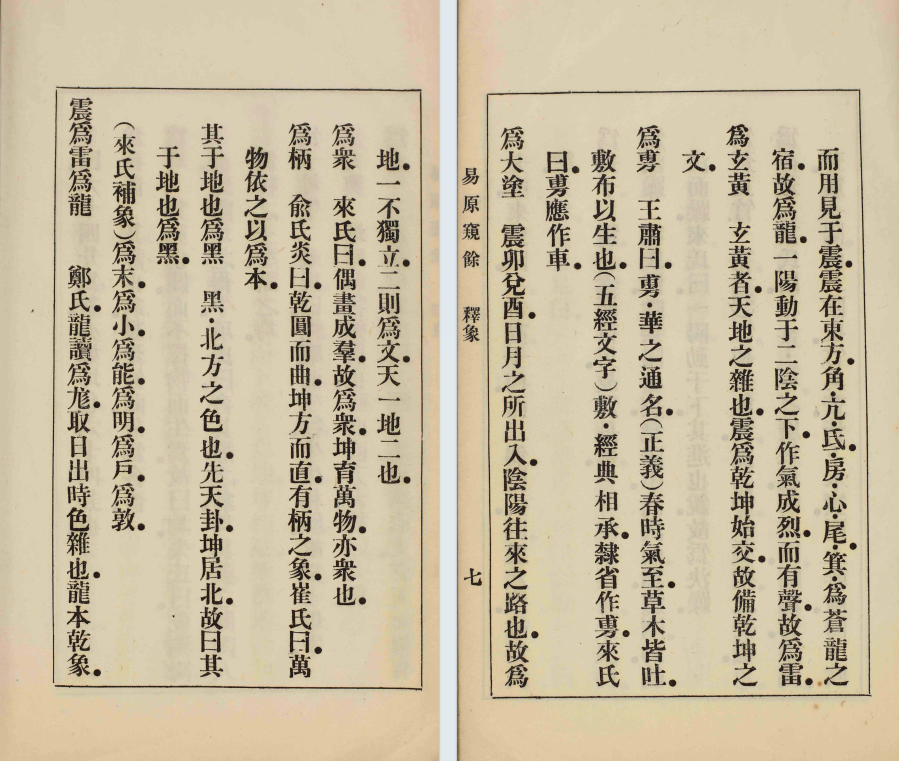 地一不獨立●二則爲文●天一地二也●
爲衆　來氏曰●偶畫成羣●故爲衆●坤育萬物●亦衆也●
爲柄　兪氏炎曰●乾圓而曲●坤方而直●有柄之象●崔氏曰●萬
物依之以爲本●
其于地也爲黑　黑・北方之色也●先天卦●坤居北●故曰其
于地也爲黑●
（來氏補象）爲末●爲小●爲能●爲明●爲戶●爲敦●
震爲雷爲龍　鄭氏●龍讀爲尨●取日出時色雜也●龍本乾象●
而用見于震●震在東方●角・亢・氐・房・心・尾・箕・爲蒼龍之
宿●故爲龍●一陽動于二陰之下●作氣成烈●而有聲●故爲雷●
爲玄黃　玄黃者●天地之雜也●震爲乾坤始交●故備乾坤之
文●
爲旉　王肅曰●旉・華之通名●（正義）春時氣至●草木皆吐●
敷布以生也●（五經文字）敷・經典相承●隸省作旉●來氏
曰●旉應作車●
爲大塗　震卯兌酉●日月之所出入●陰陽往來之路也●故爲
易原窺餘　釋象　七